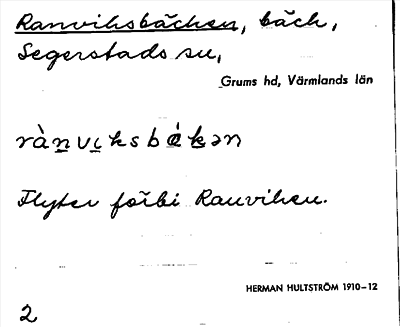 Ranviksbäcken, bäck,
Segerstads sn,
Grums hd, Värmlands län
rànviksbǽkən
Flyter förbi Ranviken.
HERMAN HULTSTRÖM 1910–12
2